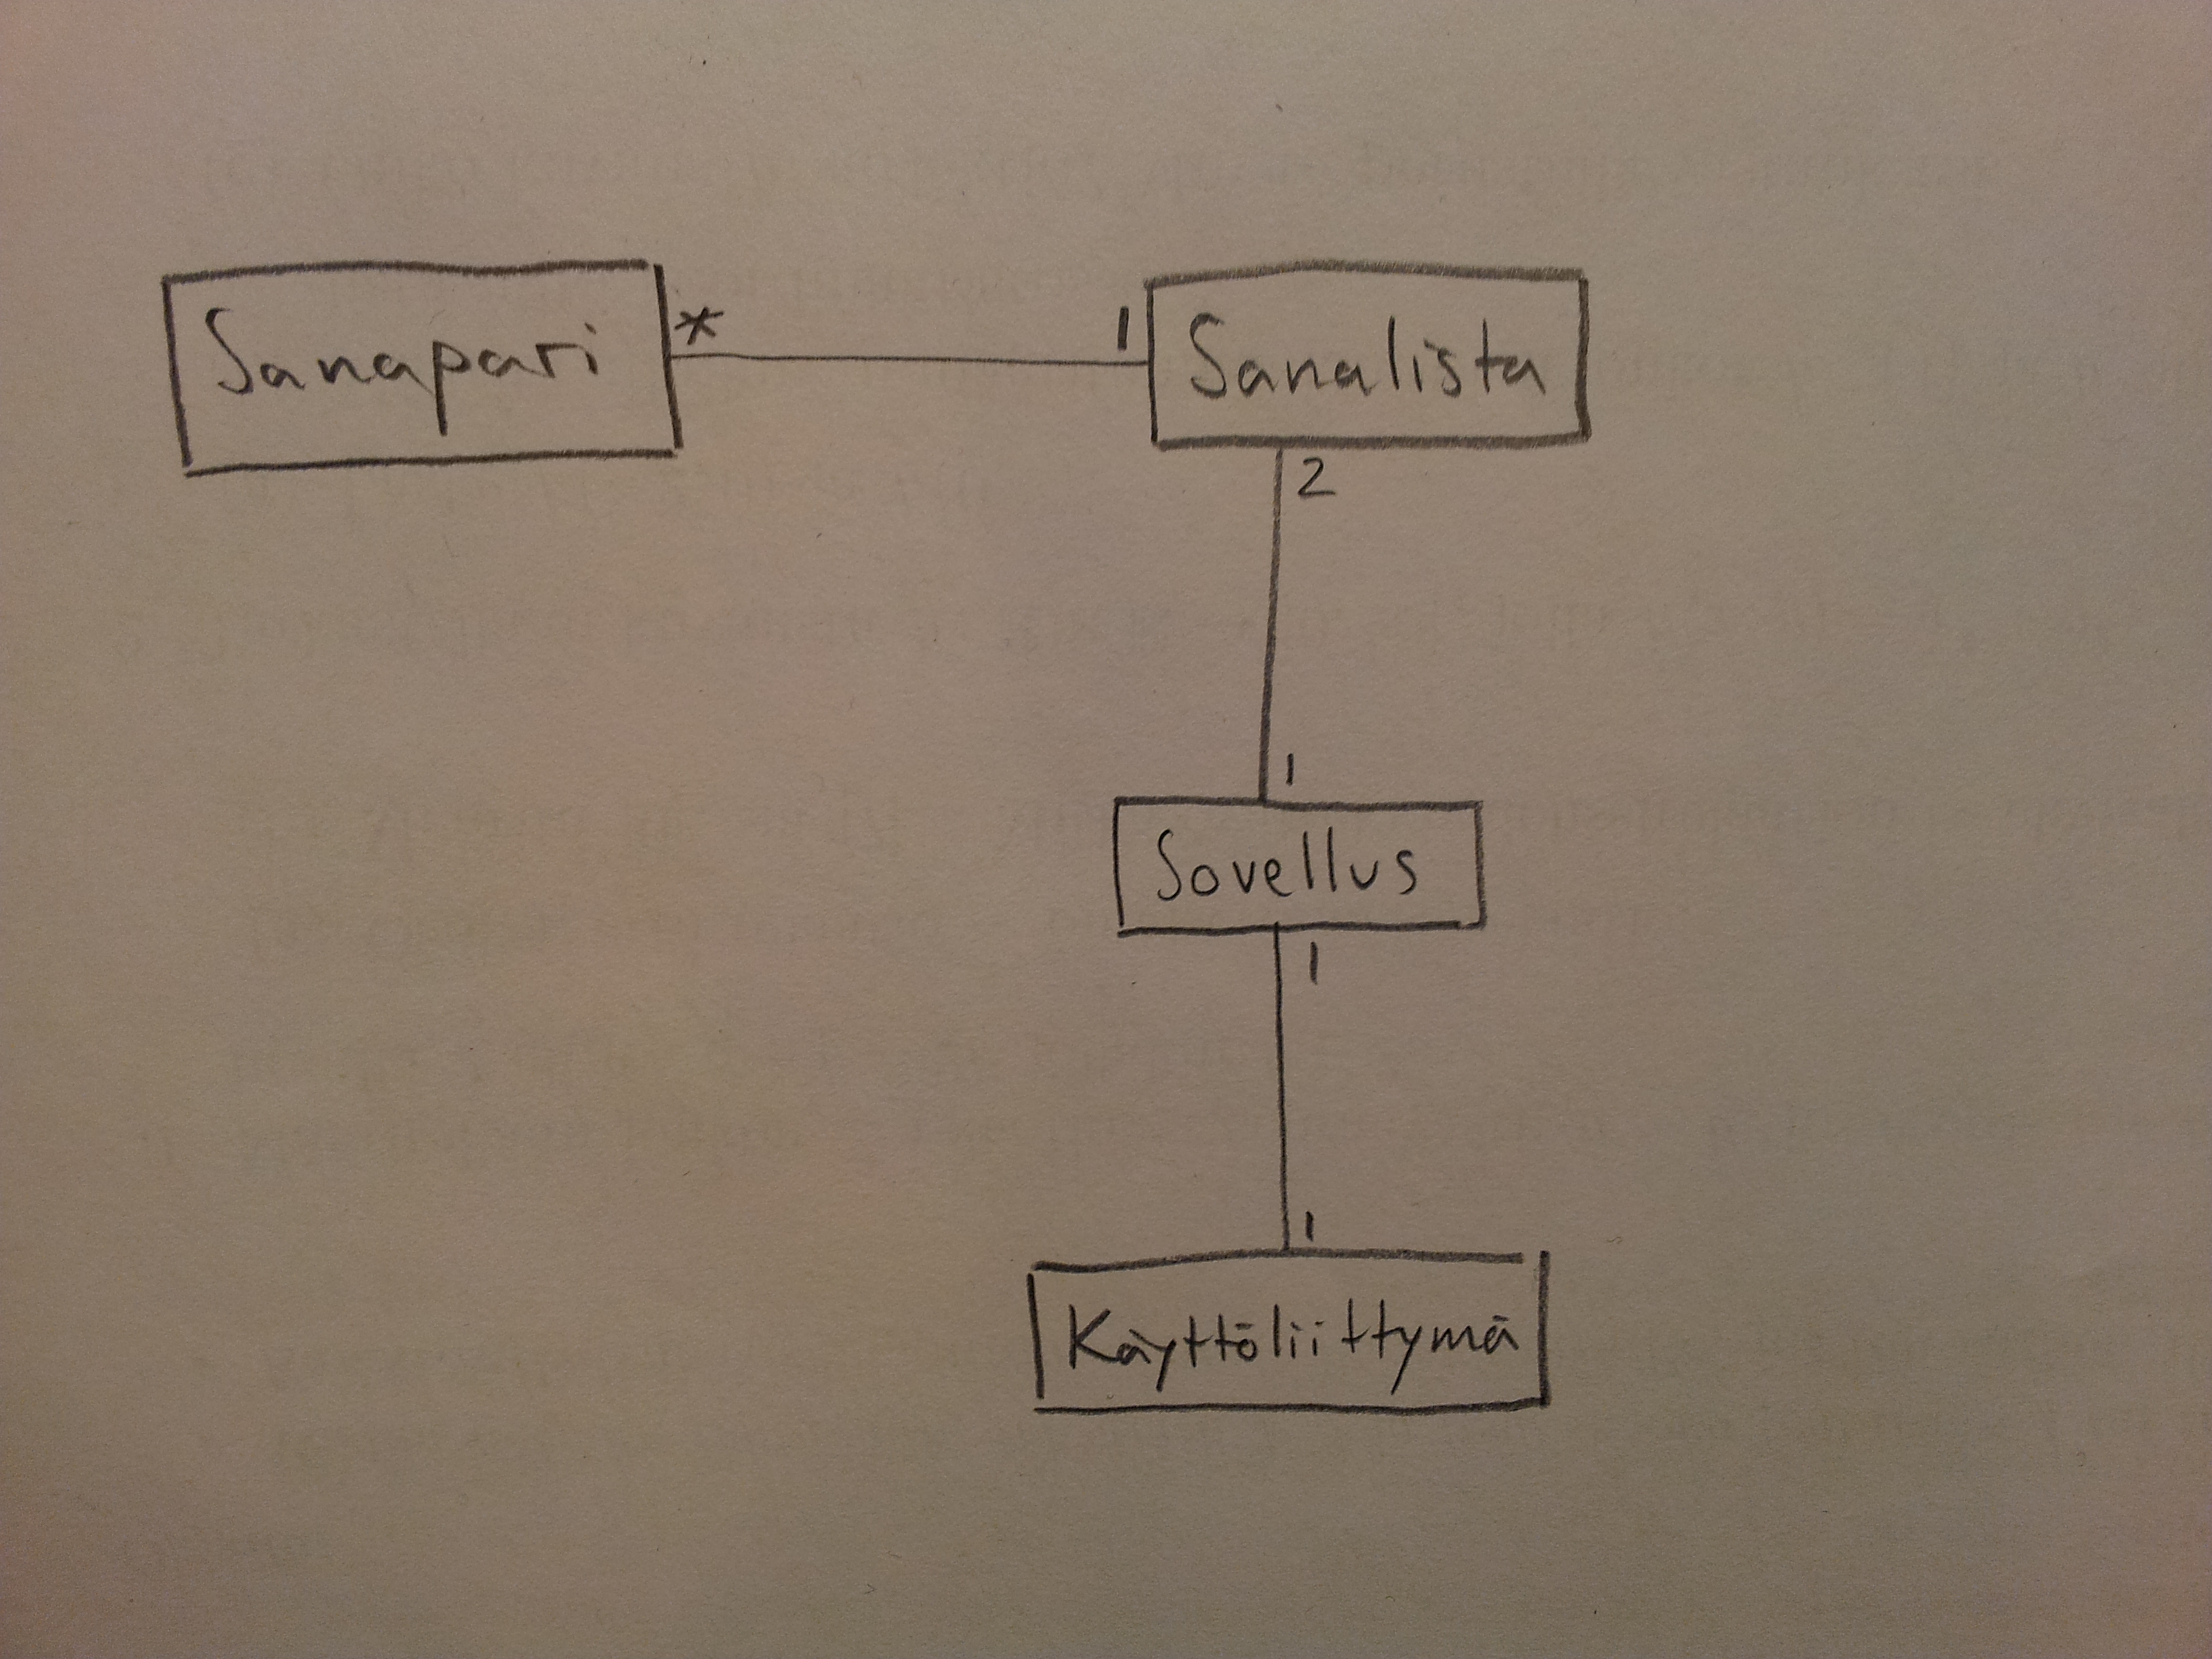 Sanapari * 1 Sanalista
2
1
Sovellus
1
1
Käyttöliittymä